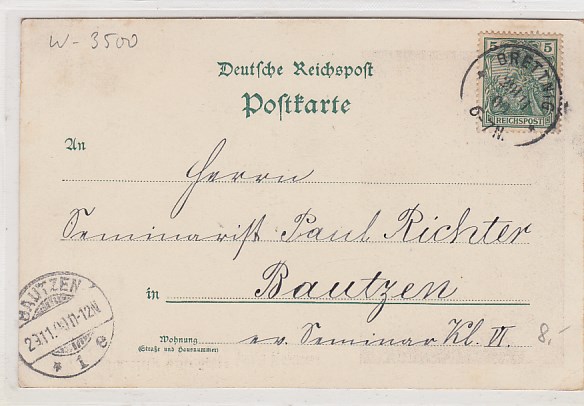 W-3500
5 5
REICHSPOST
BRETTNIG
6-7N.
Deutsche Reichspost
Postkarte
An
Herrn
Seminarist Paul Richter
in Bautzen
Wohnung
(Straße und Hausnummer)
ev. Seminar Kl. VI
8,-
BAUTZEN
11-12V
* 1 e